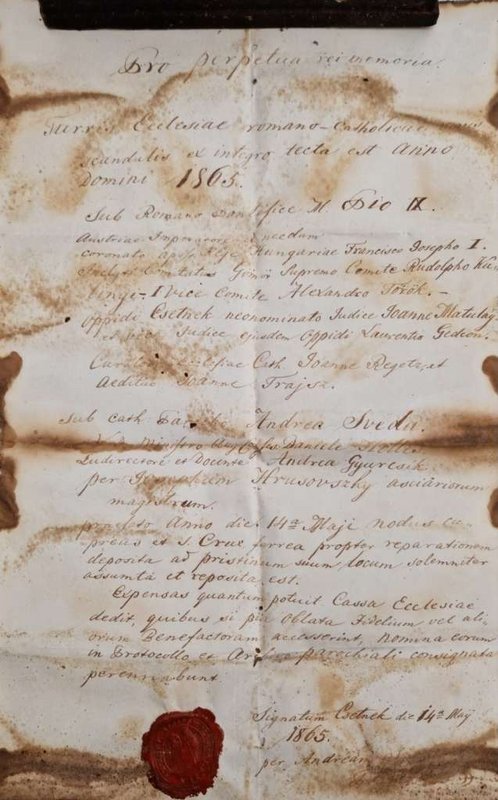 Pro perpetua rei memoria.
Turris Ecclesiae romano-catholicae
scandulis ex integro tecta est Anno
Domini 1865.
Sub Romano Pontifice M. Pio IX.
Austriae Imperatore necdum
coronato Hungariae Francisco Josepho I.
Comitatus Gömör Supremo Comite Rudolpho
I Vice Comite Alexandro Török. —
Oppidi Csetnek neonominato Judice Joanne Matulay
Judice ejusdem Oppidi Laurentio Gedeon.
Cath. Joanne Regetz, et
Aedituo Joanne Trajsz.
Sub Cath. Andrea Sveda.
Ministro Daniele
Ludirectore et Docente Andrea Gyurcsik.
per Hrusovszky asciariorum
magistrum.
Anno die 14a Maji nodus cu-
preus et S. Crux ferrea propter reparationem
deposita ad pristinum suum locum solemniter
assumta et reposita est.
Expensas quantum potuit Cassa Ecclesiae
dedit, quibus si pia oblata Fidelium vel ali-
orum Benefactorum accesserint, nomina eorum
in Protocollo et parochiali consignata
Signatum Csetnek die 14a Maji
1865.
per Andream